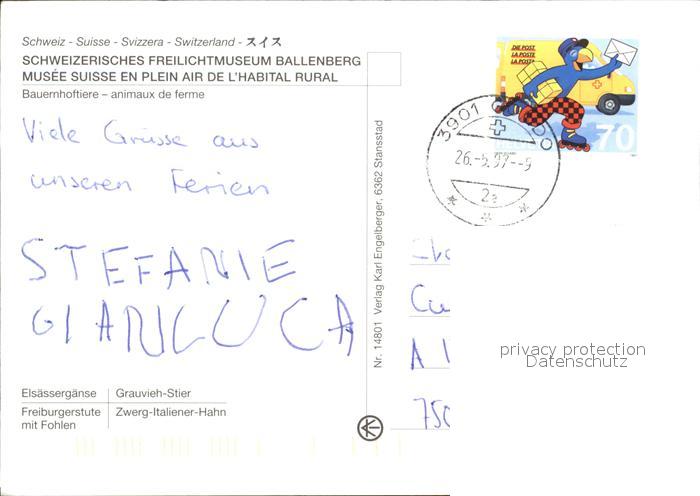 Schweiz - Suisse - Svizzera - Switzerland - スイス
SCHWEIZERISCHES FREILICHTMUSEUM BALLENBERG
MUSÉE SUISSE EN PLEIN AIR DE L'HABITAL RURAL
Bauernhoftiere – animaux de ferme
Viele Grüsse aus
unseren Ferien
STEFANIE
GIANLUCA
Elsässergänse Grauvieh-Stier
Freiburgerstute Zwerg-Italiener-Hahn
mit Fohlen
Nr. 14801 Verlag Karl Engelberger, 6362 Stansstad
DIE POST
LA POSTE
LA POSTA
70
3901
26.-5.97.--9
2a
privacy protection
Datenschutz